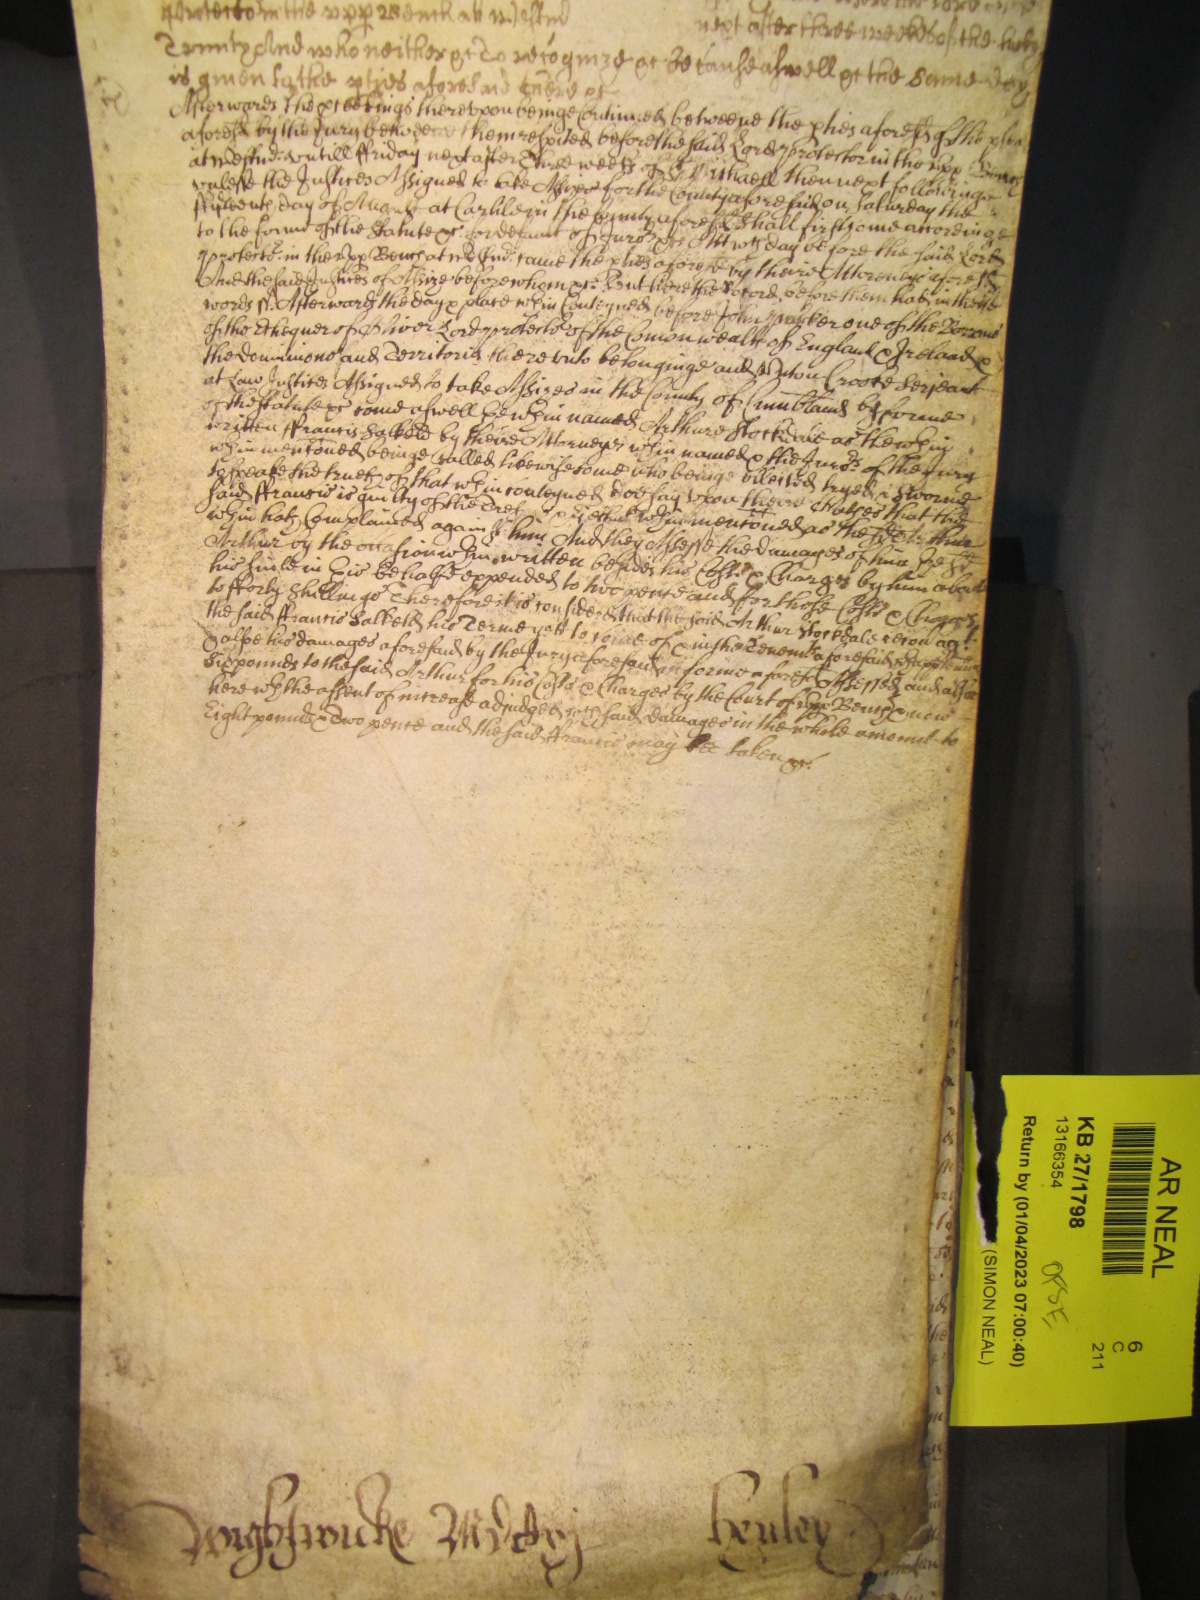 protector in the upp Bench att Westm̄
next after three weekes of the holy
Trinity And who neither &c To recognize &c Because aswell &c the same day
is given to the pties aforesaid there &c
Afterwards the pceedings thereupon beinge Continued betweene the pties aforesd of the plea
aforesd by the Jury betweene them respited before the said Lord protector in the upp Bench
at Westm̄ untill ffriday next after three weeks of St Michaell then next followinge
unlesse the Justices Assigned to take Assizes for the County aforesaid on Saturday the
ffifteenth day of August at Carlile in the County aforesd shall first come accordinge
to the forme of the Statute &c for default of Jurors &c Att wch day before the said Lord
protector in the upp Bench at Westm̄ came the pties aforesd by their Attorneys aforesd
And the said Justices of Assize before whom &c sent here the record before them had in these
words ss. Afterwards the day & place wthin Conteyned before John Parker one of the Barons
of the Exchequer of Oliver Lord protector of the Comonwealth of England & Ireland &
the dominions and Territories thereunto belonginge and Unton Croke Serjeant
at Law Justices Assigned to take Assizes in the County of Cumbland by forme
of the statute &c come aswell the wthin named Arthure Stockdale as the wthin
written ffrancis Salkeld by theire Attorneys wthin named & the Jurors of the Jury
wthin mentoned beinge called likewise come who beinge ellected tryed & sworne
to speake the trueth of that wthin conteyned doe say upon theire Oathes that the
said ffrancis is guilty of the Tres & wthin mentoned as the sd Arthur
wthin hath Complained against him And they Assesse the damages of him the sd
Arthur by the occasion wthin written besides his Costs & Charges by him about
his suite in this behalfe expended to two pence and for those Costs & Charges
to fforty shillings Therefore it is considered that the said Arthur Stockdale recover agt
the said ffrancis Salkeld his Terme yett to come of & in the Tenemts aforesaid wth thapptennces
& alsoe his damages aforesaid by the Jury aforesaid in forme aforesd Assessed and alsoe
Six pounds to the said Arthur for his Costs & Charges by the Court of upp Bench now
here wth the assent of increase adjudged wch said damages in the whole amount to
Eight pounds & Two pence and the said ffrancis may bee taken &c
Wightwicke
Henley
AR NEAL
KB 27/1798
13166354
Return by (01/04/2023 07:00:40)
(SIMON NEAL)
6
C
211